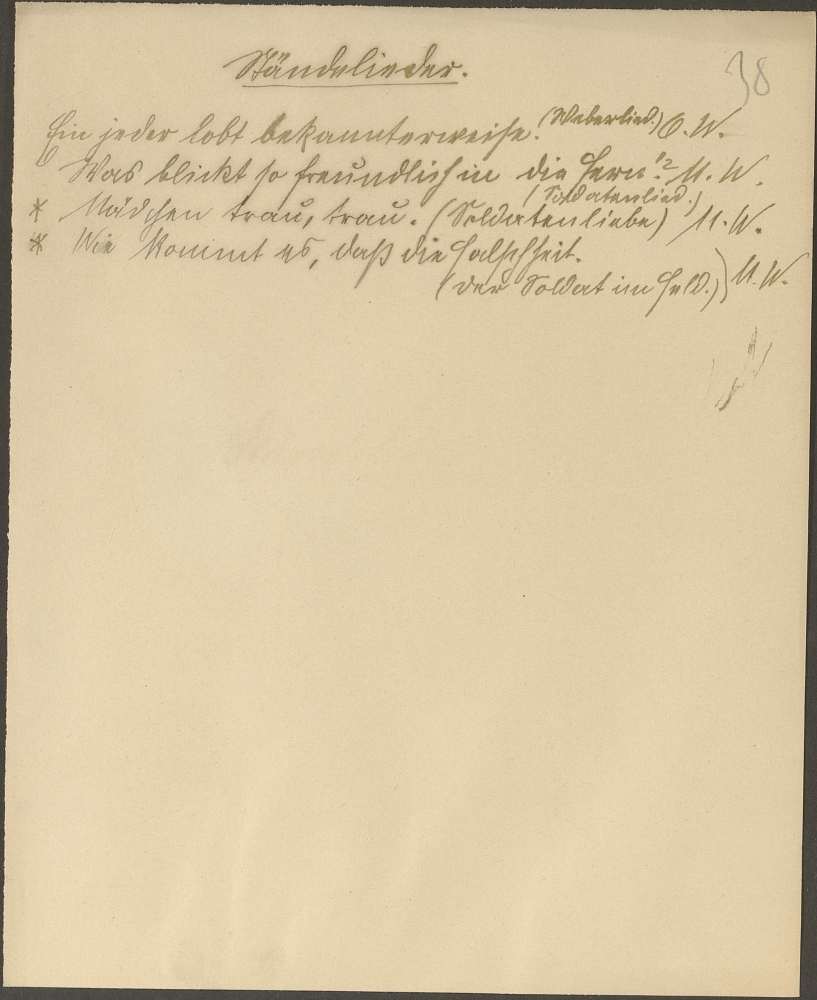 Ständelieder.
38
Ein jeder lobt bekannterweise. (Weberlied.) O. W.
Was blickt so freundlich in die Fern"? M. W.
(Soldatenlied.)
* Mädchen trau, trau. (Soldatenliebe) M. W.
* Wie kommt es, daß die Falschheit.
(der Soldat im Feld.)) M. W.